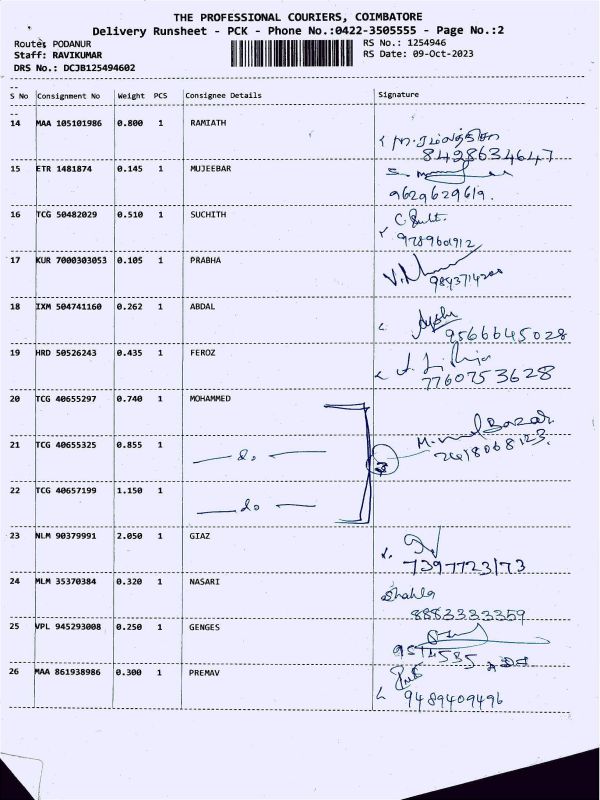 THE PROFESSIONAL COURIERS, COIMBATORE
Delivery Runsheet - PCK - Phone No.:0422-3505555 - Page No.:2
Route: PODANUR
RS No.: 1254946
Staff: RAVIKUMAR
RS Date: 09-Oct-2023
DRS No.: DCJB125494602
--
S No Consignment No Weight PCS Consignee Details Signature
--
14 MAA 105101986 0.800 1 RAMIATH
8428634647
15 ETR 1481874 0.145 1 MUJEEBAR
9629629619.
16 TCG 50482029 0.510 1 SUCHITH
9789601912
17 KUR 7000303053 0.105 1 PRABHA
18 IXM 504741160 0.262 1 ABDAL
9566645028
19 HRD 50526243 0.435 1 FEROZ
7760753628
20 TCG 40655297 0.740 1 MOHAMMED
21 TCG 40655325 0.855 1
— do —
3
22 TCG 40657199 1.150 1
— do —
23 NLM 90379991 2.050 1 GIAZ
7397723173
24 MLM 35370384 0.320 1 NASARI
Shahla
8883333359
25 VPL 945293008 0.250 1 GENGES
26 MAA 861938986 0.300 1 PREMAV
9489409496